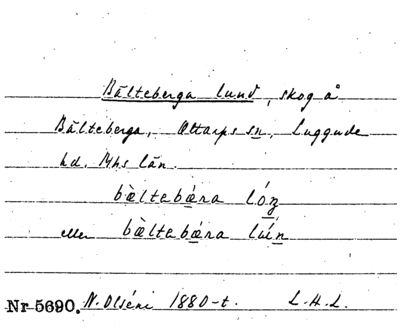 Bälteberga lund, skog å
Bälteberga, Ottarps sn, Luggude
hd. Mhs län.
bèltebæ̀ra
eller bèltebæ̀ra
Nr 5690. N. Olséni 1880-t. L.H.L.